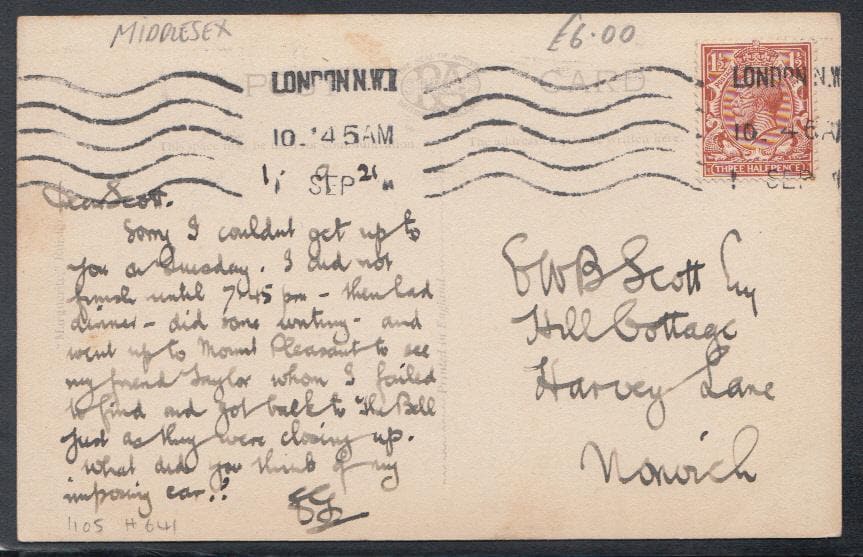 MIDDLESEX
£6.00
POST CARD
LONDON.N.W.1
10.45AM
1 SEP 21
LONDON.N.W
10.45A
1 SEP
1½ 1½
THREE HALFPENCE
Dear Scott.
Sorry I couldnt get up to
you on Tuesday. I did not
finish until 7.45 pm - then had
dinner - did some writing - and
went up to Mount Pleasant to see
my friend Taylor whom I failed
to find and got back to The Bell
just as they were closing up.
What did you think of my
imposing car.?
1105 H641
E W B Scott Esq
Hill Cottage
Harvey Lane
Norwich
Printed in England